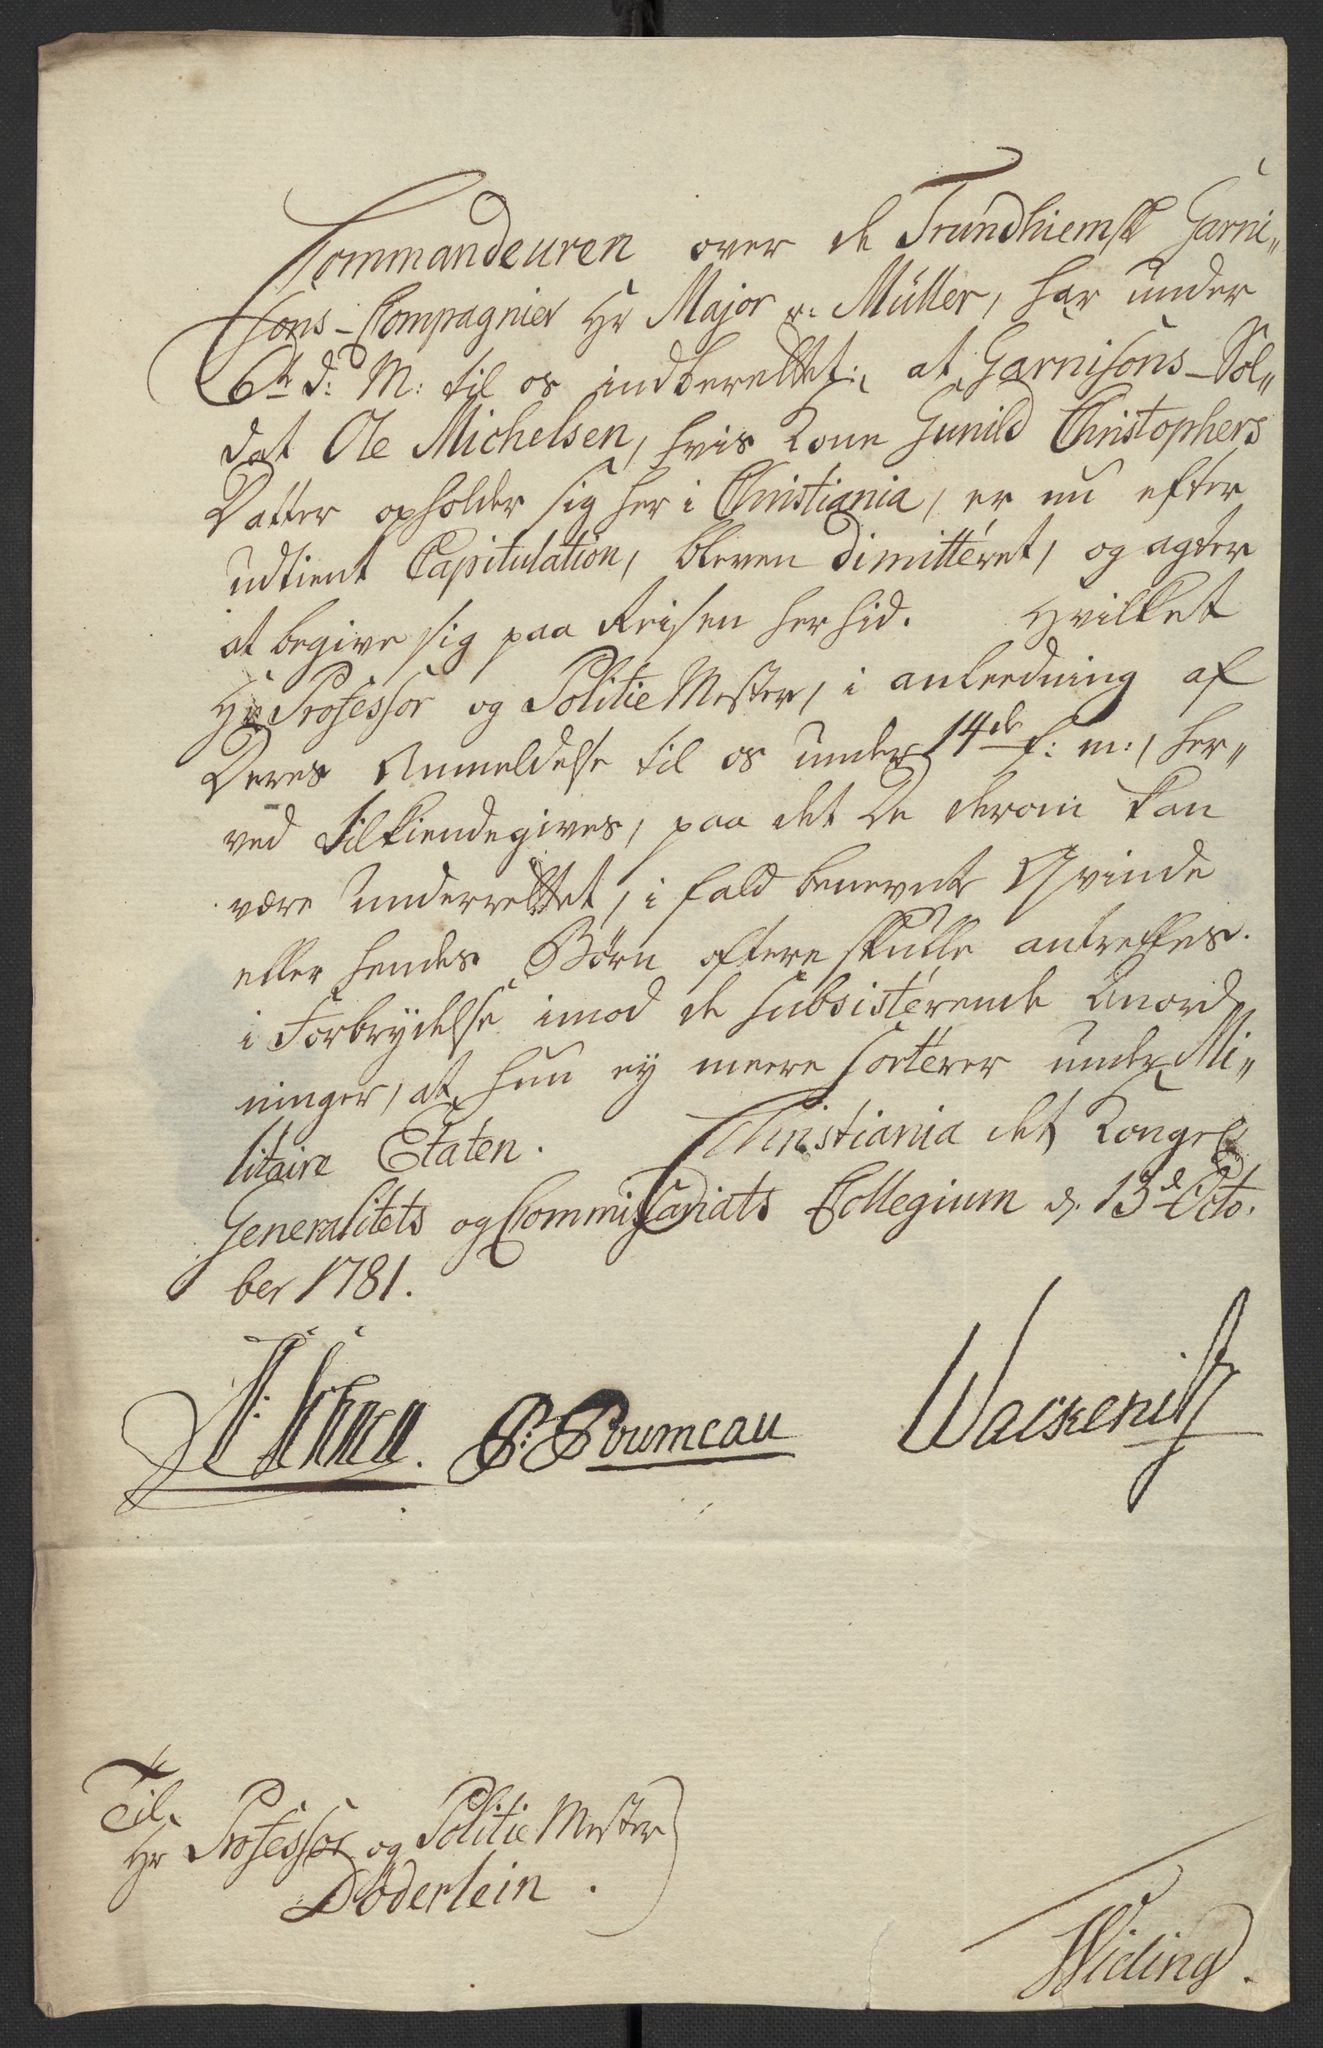 Commandeuren over de Trundhiemske Garni„
sons-Compagnier Hr Major v: Müller, har under
6te d: M: til os indberettet, at Garnisons-Sol„
dat Ole Michelsen, hvis Kone Gunild Christophers
Datter opholder sig her i Christiania, er nu efter
udtient Capitulation, bleven dimitteret, og agter
at begive sig paa Reisen herhid. Hvilket
Hr Professor og Politie Mester, i anleedning af
Deres Anmeldelse til os under 14de f: m:, her„
ved tilkiendegives, paa det De derom kan
være underrettet, i fald benevnte Qvinde
eller hendes Børn oftere skulle antreffes
i Forbrydelse imod de subsisterende Anord„
ninger, at hun ey meere sorterer under Mi„
litaire Etaten. Christiania det Kongel
Generalitets og Commissariats Collegium d. 13de Octo.
ber 1781.
P. Poumeau Wackenitz
Til
Hr Professor og Politie Mester
Døderlein.
Wiling.